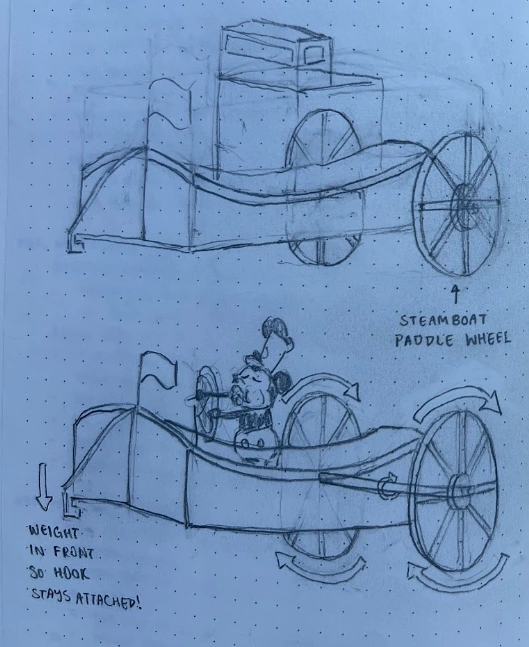 STEAMBOAT
PADDLE WHEEL
WEIGHT
IN FRONT
SO HOOK
STAYS ATTACHED!